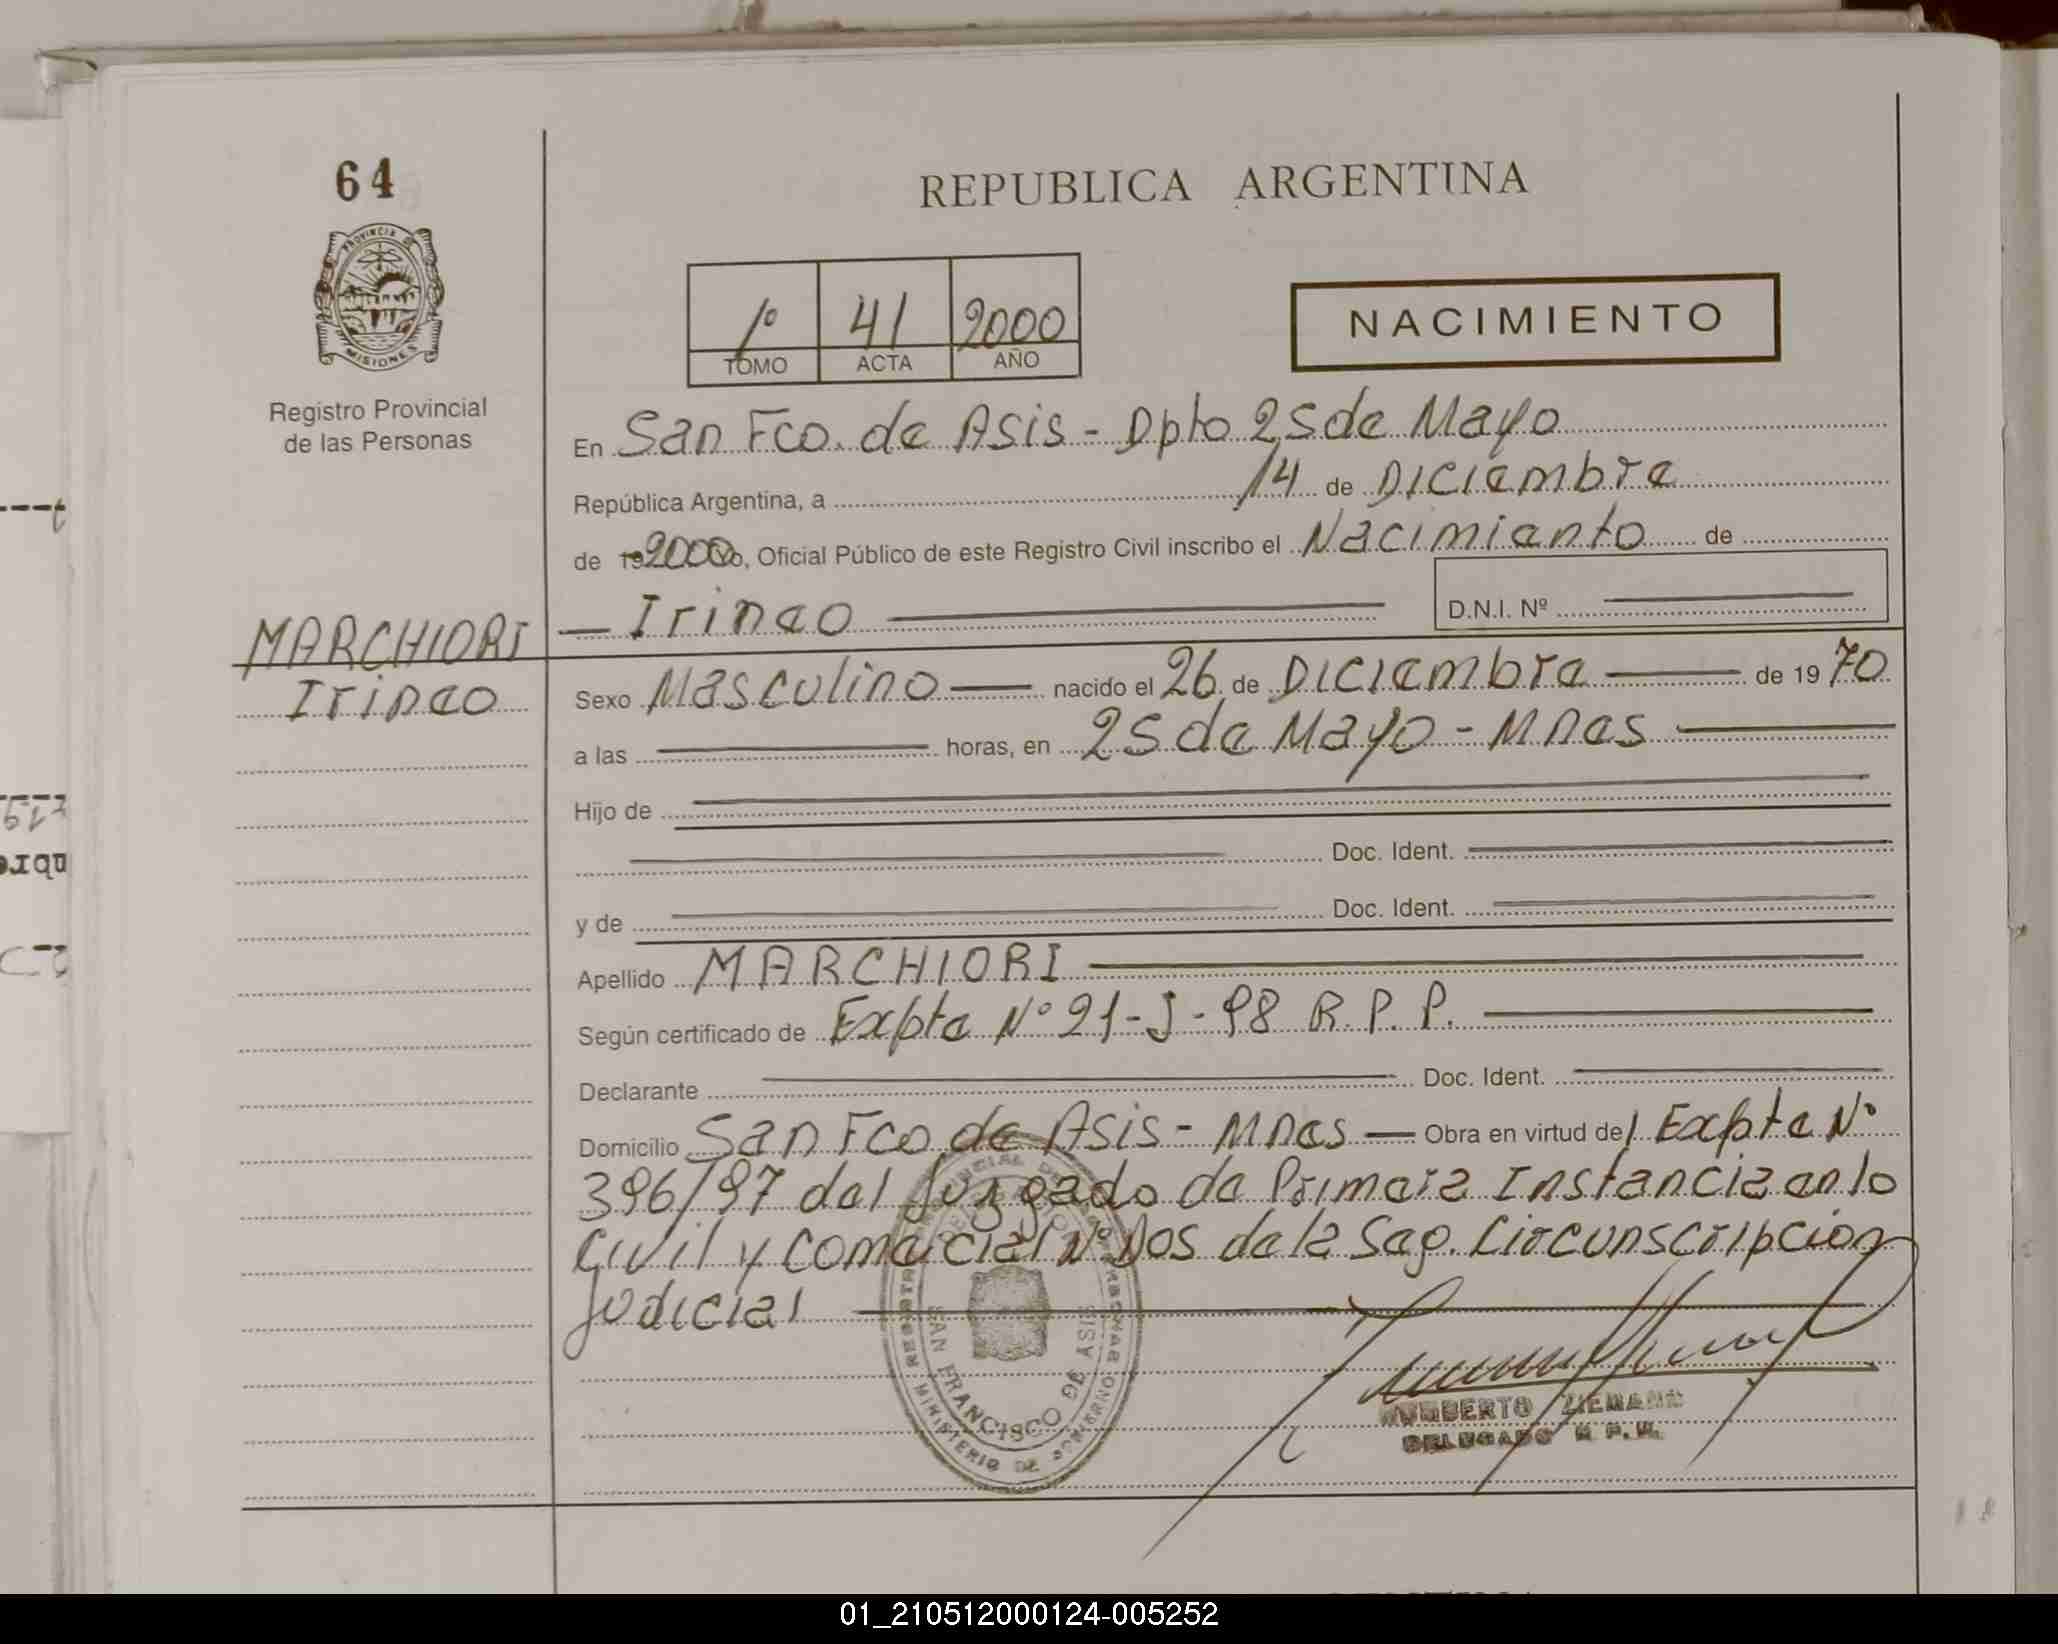 64
REPUBLICA ARGENTINA
PROVINCIA DE
MISIONES
Registro Provincial
de las Personas
1º 41 2000
TOMO ACTA AÑO
NACIMIENTO
En San Fco. de Asis - Dpto 25 de Mayo
República Argentina, a 14 de Diciembre
de 19 2000 yo, Oficial Público de este Registro Civil inscribo el Nacimiento de
Irineo D.N.I. Nº
MARCHIORI
Irineo
Sexo Masculino nacido el 26 de Diciembre de 19 70
a las horas, en 25 de Mayo - Mnes
Hijo de
Doc. Ident.
y de Doc. Ident.
Apellido MARCHIORI
Según certificado de Expte Nº 21-J-98 R.P.P.
Declarante Doc. Ident.
Domicilio San Fco de Asis - Mnes Obra en virtud del Expte Nº
396/97 del Juzgado de Primera Instancia en lo
Civil y Comercial Nº Dos de la Seg. Circunscripción
Judicial
SAN FRANCISCO DE ASIS
MINISTERIO DE GOBIERNO
HUMBERTO
DELEGADO
01_210512000124-005252